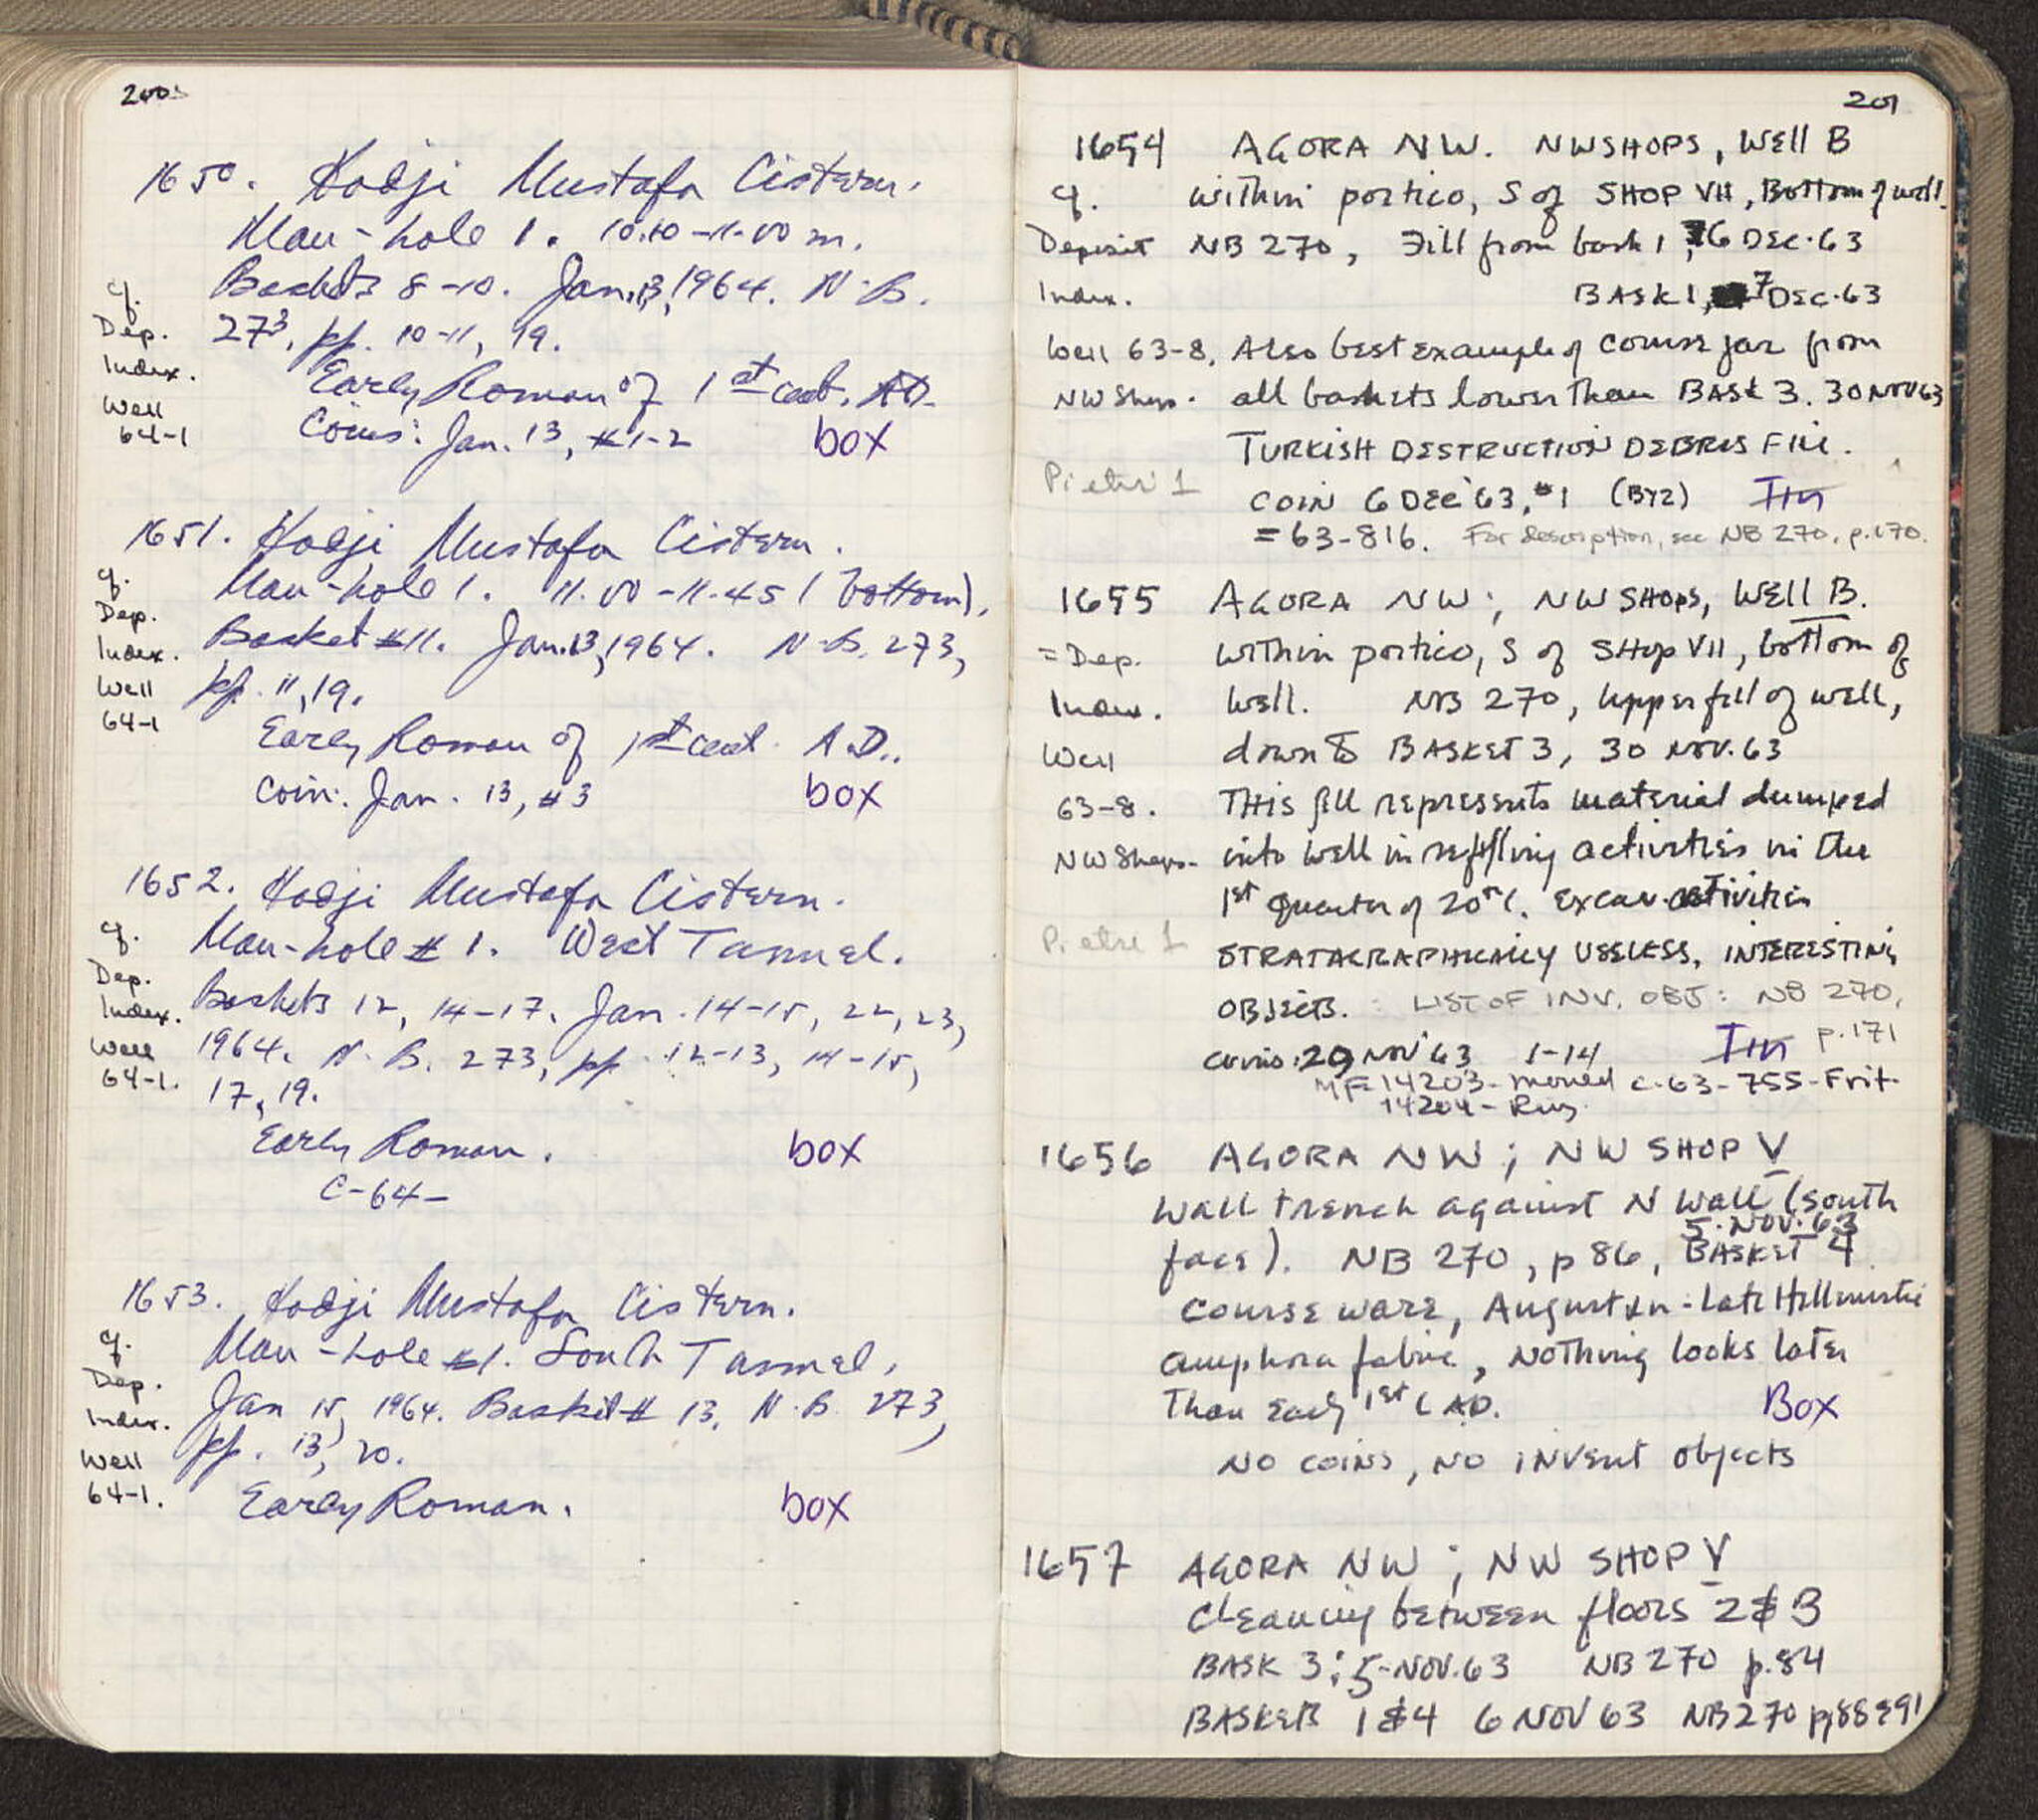 200
1650. Hodji Mustafa Cistern.
Man-hole 1. 10.10-11.00 m.
Baskets 8-10. Jan. 13, 1964. N.B.
273, pp. 10-11, 19.
Early Roman of 1st cent. A.D.
Coins: Jan. 13, #1-2 box
cf.
Dep.
Index.
Well
64-1
1651. Hodji Mustafa Cistern.
Man-hole 1. 11.00-11.45 (bottom).
Basket #11. Jan. 13, 1964. N.B. 273,
pp. 11, 19.
Early Roman of 1st cent. A.D..
Coin: Jan. 13, #3 box
cf.
Dep.
Index.
Well
64-1
1652. Hodji Mustafa Cistern.
Man-hole # 1. West Tunnel.
Baskets 12, 14-17. Jan. 14-15, 22, 23,
1964. N.B. 273, pp. 12-13, 14-15,
17, 19.
Early Roman. box
C-64-
cf.
Dep.
Index.
Well
64-1.
1653. Hodji Mustafa Cistern.
Man-hole #1. South Tunnel.
Jan 15, 1964. Basket # 13. N.B. 273,
pp. 13, 20.
Early Roman. box
cf.
Dep.
Index.
Well
64-1.
201
1654 AGORA NW. NWSHOPS, Well B
within portico, S of SHOP VII, Bottom of well.
NB 270, Fill from bask 1, 6 DEC.63
BASK 1, 7 DEC.63
Also best example of course jar from
all baskets lower than BASK 3. 30 NOV 63
TURKISH DESTRUCTION DEBRIS FILL.
COIN 6 DEC 63, #1 (BYZ) Tin
= 63-816. For description, see NB 270, p.170.
cf.
Deposit
Index.
Well 63-8,
NW Shops.
Pietri 1
1655 AGORA NW; NW SHOPS, WELL B.
within portico, S of SHop VII, bottom of
well. NB 270, Upper fill of well,
down to BASKET 3, 30 NOV.63
THis fill represents material dumped
into well in refilling activities in the
1st quarter of 20th C. Excav. activities
STRATAGRAPHICALLY USELESS, INTERESTING
OBJECTS. LIST OF INV. OBJ: NB 270,
p.171
coins: 29 NOV 63 1-14 Tin
MF 14203- moved C-63-755- Frit-
14204- Ring
= Dep.
Index.
Well
63-8.
NW Shops-
Pietri 1
1656 AGORA NW; NW SHOP V
Wall trench against N Wall (south
face). NB 270, p 86, 5.NOV.63 BASKET 4
course ware, Augustan-Late Hellenistic
amphora fabric, Nothing looks later
Than Early 1st C AD. Box
NO COINS, NO iNVENT objects
1657 AGORA NW; NW SHOP V
Cleaning between floors 2 & 3
BASK 3; 5-NOV.63 NB 270 p.84
BASKETS 1 & 4 6 NOV 63 NB 270 pp 88 & 91